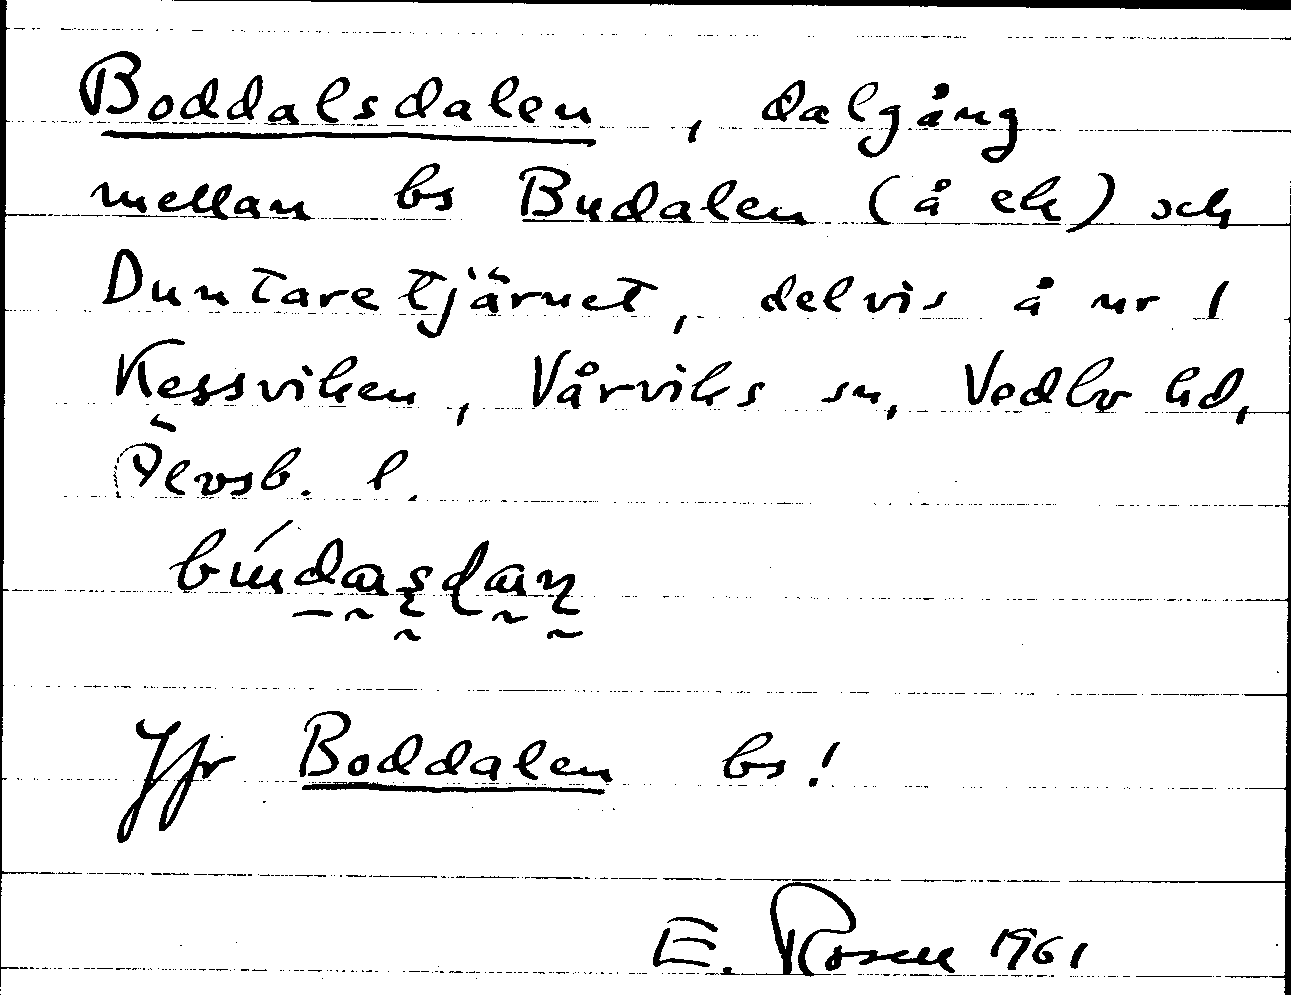 Boddalsdalen, dalgång
mellan bs Budalen (å ek) och
Duntaretjärnet, delvis å nr 1
Kessviken, Vårviks sn, Vedbo hd,
Älvsb. l.
Jfr Boddalen bs!
E. Rosell 1961